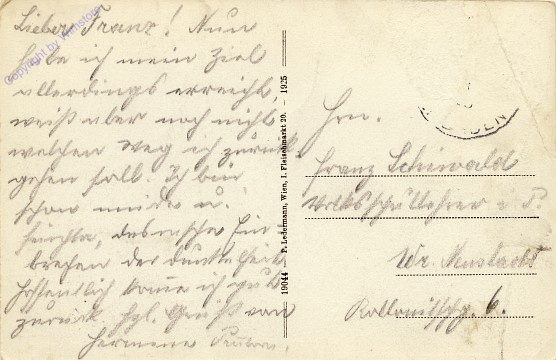 Lieber Franz! Nun
habe ich mein Ziel
allerdings erreicht,
weiß aber noch nicht
welchen Weg ich zurück
gehen soll. Ich bin
schon müde u.
fürchte, das rasche Ein
brechen der Dunkelheit.
Hoffentlich komme ich gut
zurück. Hzl. Gruß von
Hermene
Copyright by Wilnstorm
19044 P. Ledermann, Wien, I. Fleischmarkt 20. — 1925
Hrn.
Franz Schiwald
Volksschullehrer
Wr. Neustadt
Kollonitschg. 6.